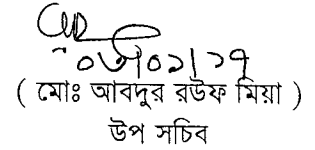 ০৩/০১/১৭
( মোঃ আবদুর রউফ মিয়া )
উপ সচিব